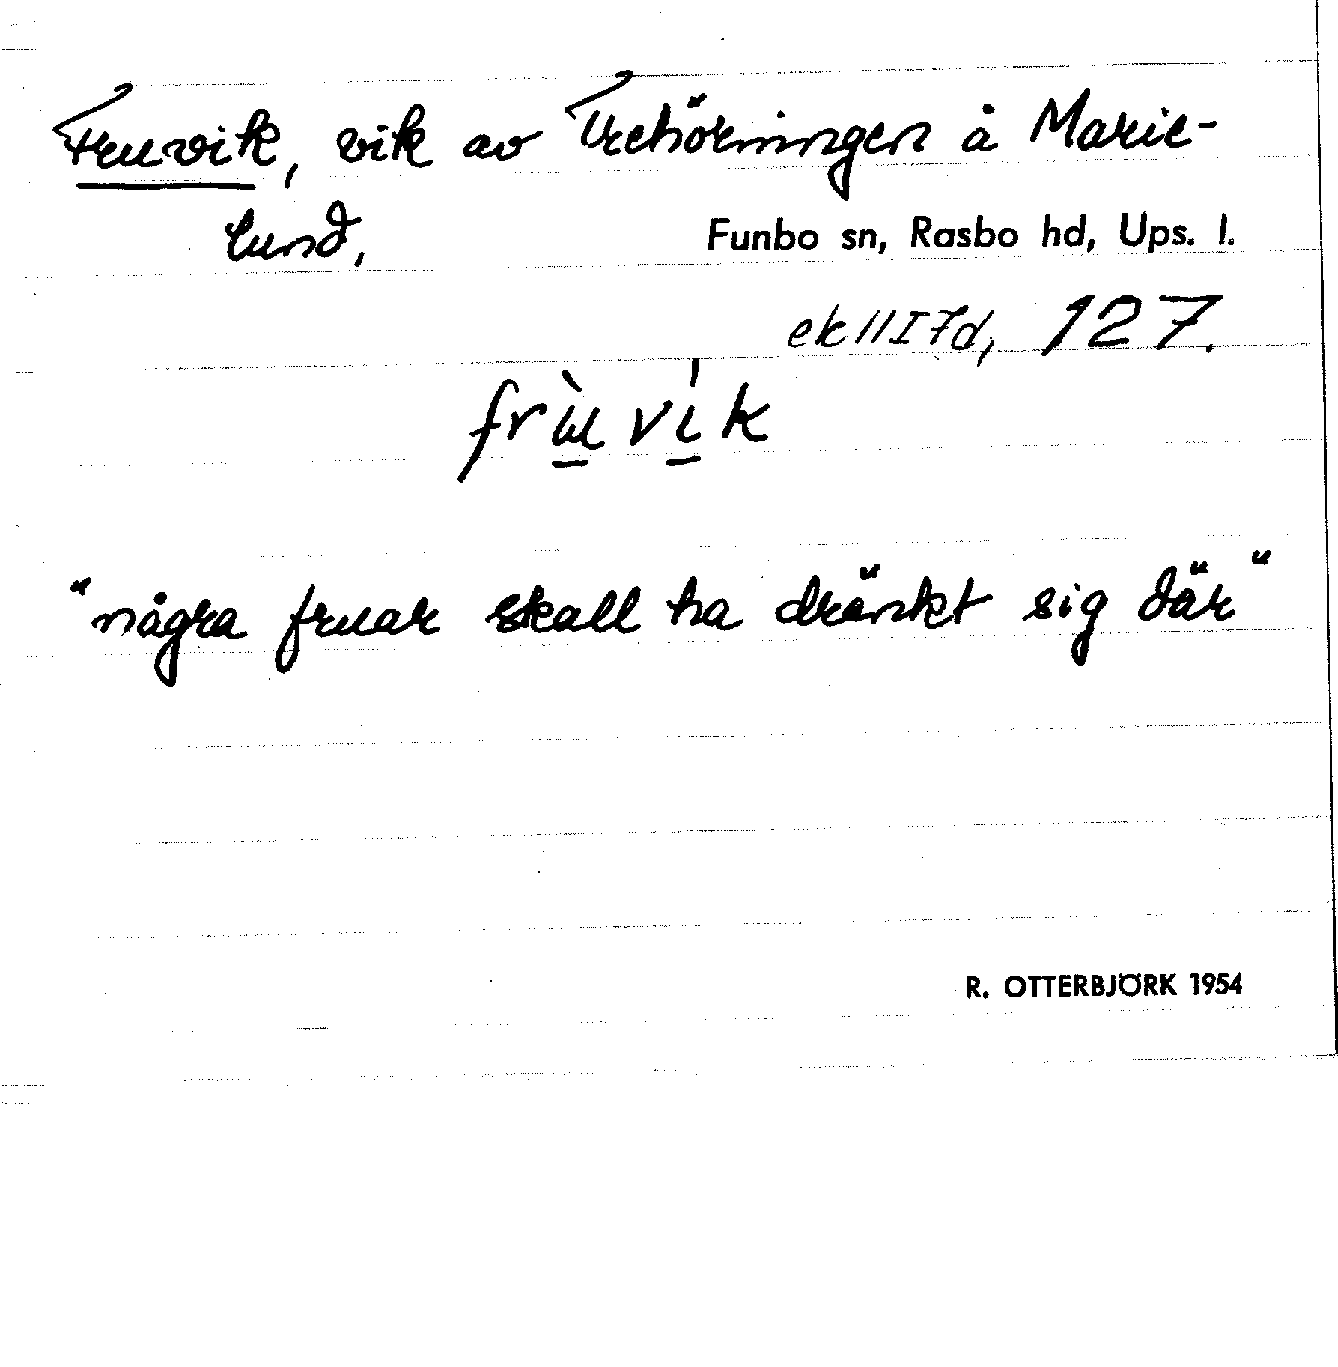 Fruvik, vik av Trehörningen å Marie-
lund, Funbo sn, Rasbo hd, Ups. l.
ek 11I7d, 127.
frɯ̀vík
"några fruar skall ha dränkt sig där"
R. OTTERBJÖRK 1954